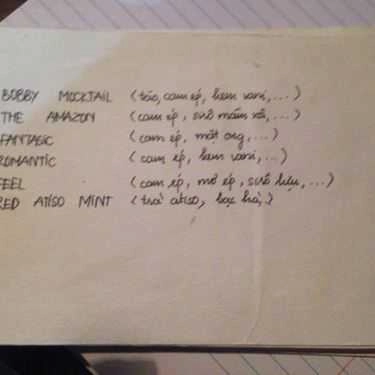 BOBBY MOCKTAIL (táo, cam ép, kem vani, ...)
THE AMAZON (cam ép, sirô mâm xôi, ...)
FANTASIC (cam ép, mật ong, ...)
ROMANTIC (cam ép, kem vani, ...)
FEEL (cam ép, mơ ép, sirô lựu, ...)
RED ATISO MINT (trà atiso, bạc hà,)